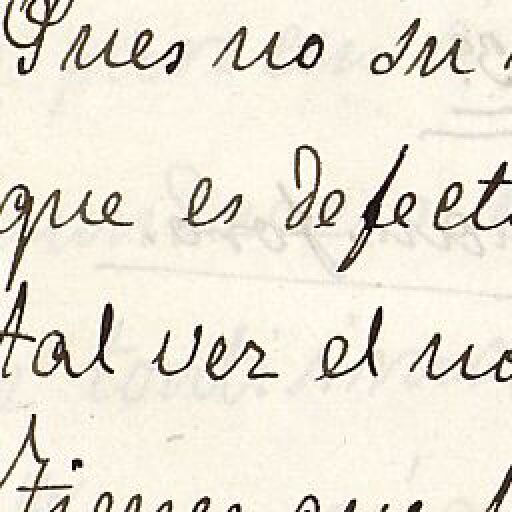 Pues no su
que es defect
tal vez el no
tienes que